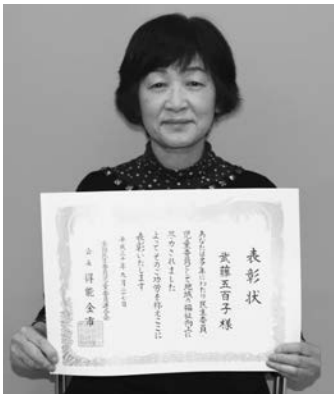 表彰状
武藤五百子 様
あなたは多年にわたり民生委員
児童委員として地域の福祉向上に
尽力されました
よってそのご功労を称えここに
表彰いたします
平成三十年九月二十七日
会長 得能金市